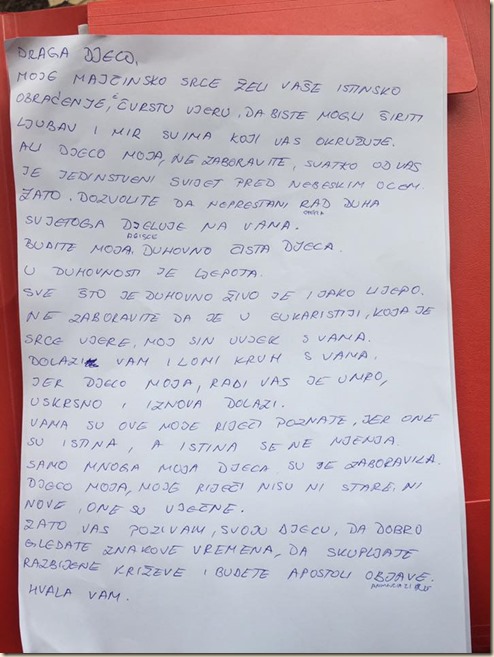 DRAGA DJECO,
MOJE MAJČINSKO SRCE ŽELI VAŠE ISTINSKO
OBRAĆENJE, ČVRSTU VJERU, DA BISTE MOGLI ŠIRITI
LJUBAV I MIR SVIMA KOJI VAS OKRUŽUJE.
ALI DJECO MOJA, NE ZABORAVITE, SVATKO OD VAS
JE JEDINSTVENI SVIJET PRED NEBESKIM OCEM.
ZATO DOZVOLITE DA NEPRESTANI RAD DUHA
SVJETOGA DJELUJE NA VAMA.
BUDITE MOJA DUHOVNO ČISTA DJECA.
U DUHOVNOSTI JE LJEPOTA.
SVE ŠTO JE DUHOVNO ŽIVO JE I JAKO LIJEPO.
NE ZABORAVITE DA JE U EUKARISTIJI, KOJA JE
SRCE VJERE, MOJ SIN UVJEK S VAMA.
DOLAZI VAM I LOMI KRUH S VAMA.
JER DJECO MOJA, RADI VAS JE UMRO,
USKRSNO I IZNOVA DOLAZI.
VAMA SU OVE MOJE RIJEČI POZNATE, JER ONE
SU ISTINA, A ISTINA SE NE MJENJA.
SAMO MNOGA MOJA DJECA SU JE ZABORAVILA.
DJECO MOJA, MOJE RIJEČI NISU NI STARE, NI
NOVE, ONE SU VJEČNE.
ZATO VAS POZIVAM, SVOJU DJECU, DA DOBRO
GLEDATE ZNAKOVE VREMENA, DA SKUPLJATE
RAZBIJENE KRIŽEVE I BUDETE APOSTOLI OBJAVE.
HVALA VAM.